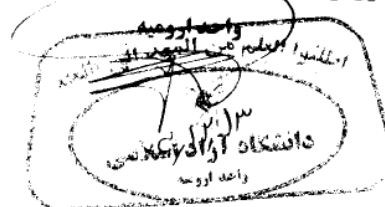 واحد ارومیه
اطلبوا العلم من المهد الی
دانشگاه آزاد اسلامی
واحد ارومیه